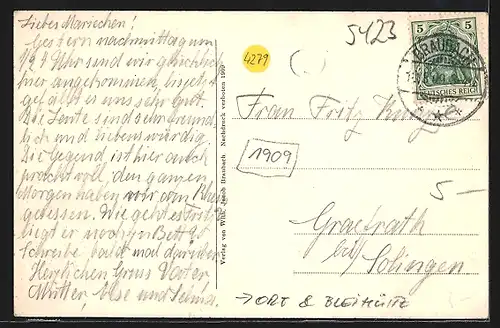 Liebes Mariechen!
Gestern nachmittag um
1/2 5 Uhr sind wir glücklich
hier angekommen, bis jetzt
gefällt es uns sehr gut.
Die Leute sind sehr freund
lich und liebenswürdig
Die Gegend ist hier auch
prachtvoll, den ganzen
Morgen haben wir am Rhein
gesessen. Wie geht es
liegt er noch im Bett?
Schreibe bald mal darüber
Herzlichen Gruss Vater
Mutter, Else und
Verlag von Wilh. Jacob Braubach Nachdruck verboten 1909
4279
5423
5 5
BRAUBACH
DEUTSCHES REICH
Frau Fritz
1909
5-
Graefrath
bei
Solingen
→ ORT & BLEIHÜTTE